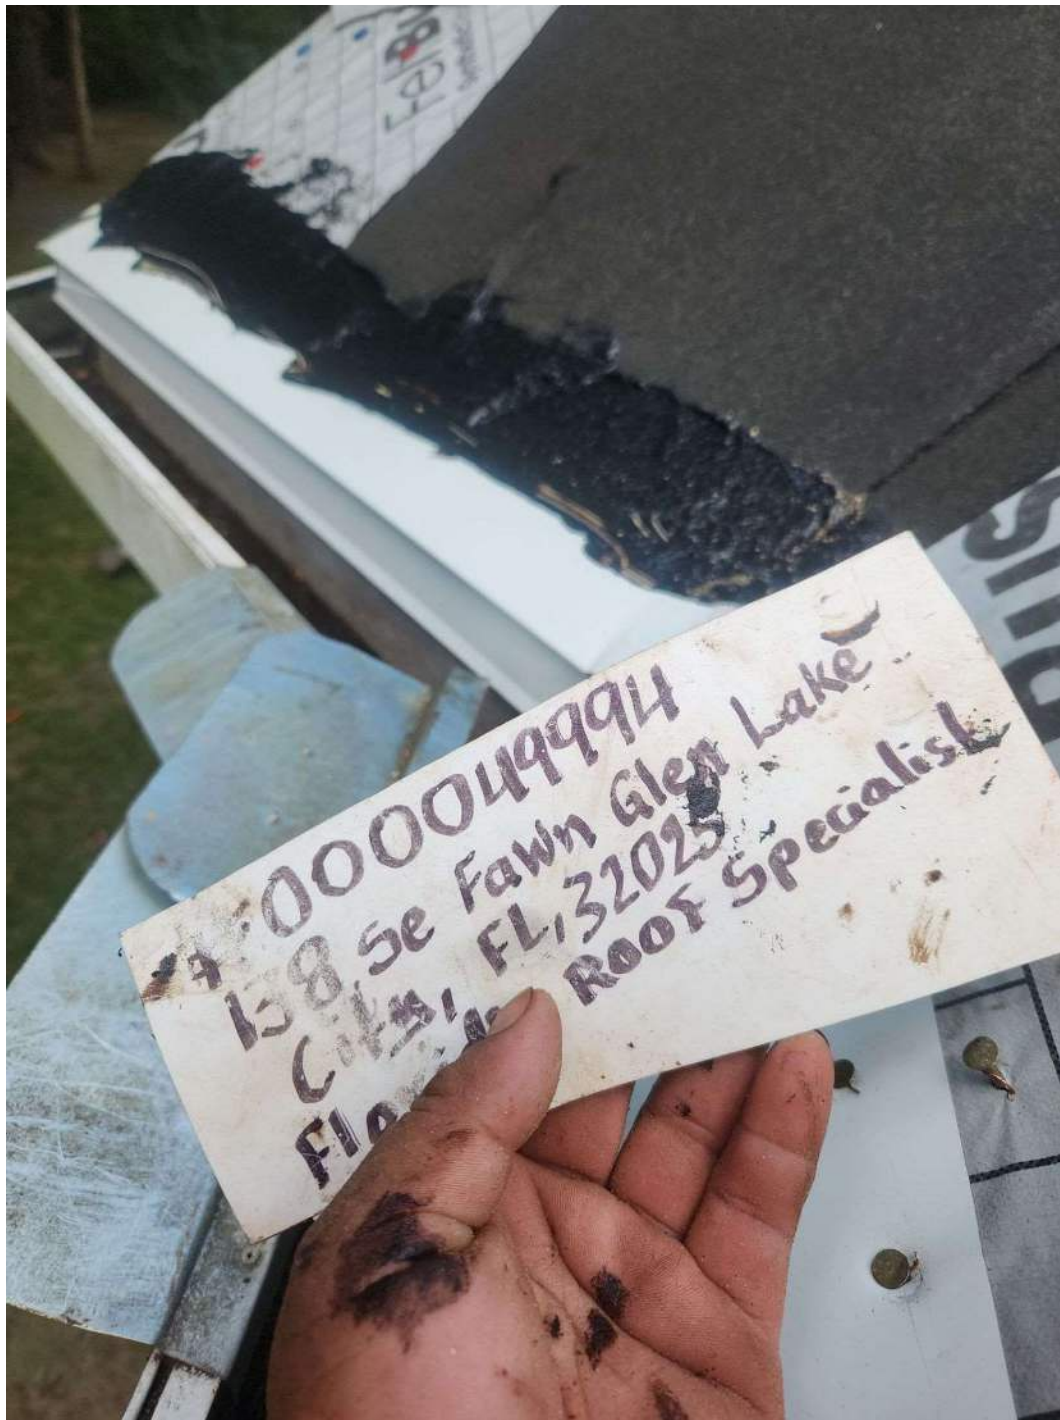 FelBu
# 000049994
138 Se Fawn Glen Lake
City, FL, 32025
Roof Specialist